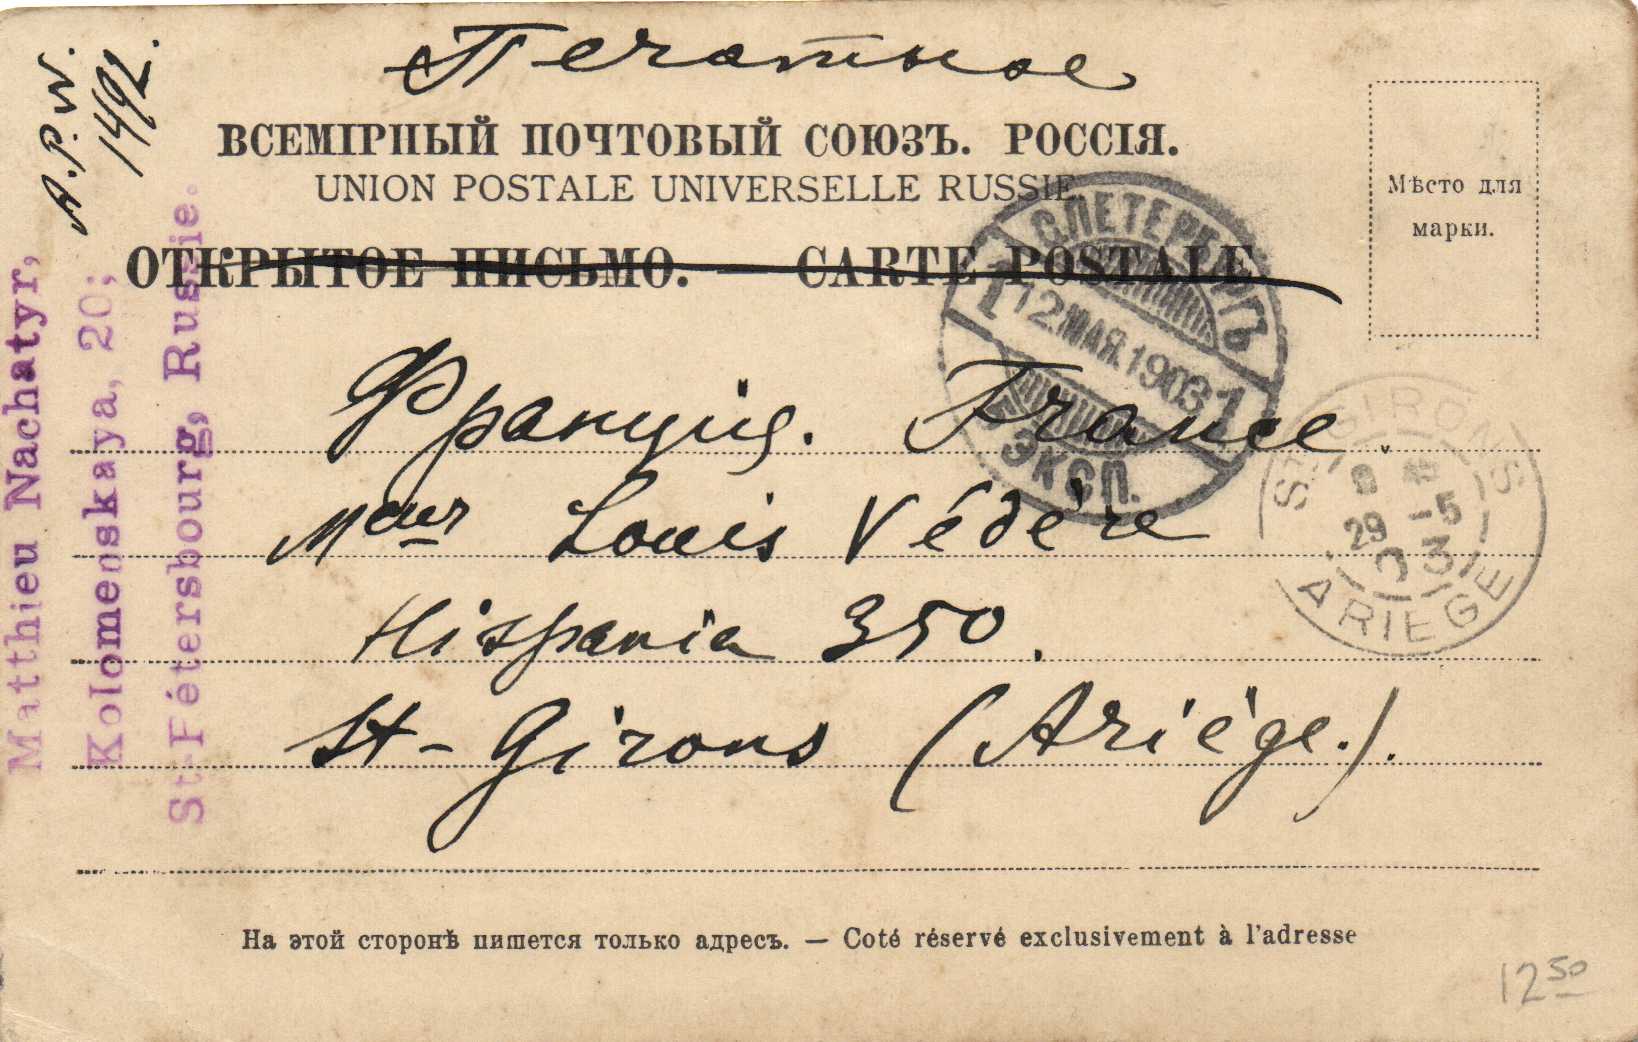 Печатное
ВСЕМІРНЫЙ ПОЧТОВЫЙ СОЮЗЪ. РОССІЯ.
UNION POSTALE UNIVERSELLE RUSSIE
ОТКРЫТОЕ ПИСЬМО. — CARTE POSTALE
Мѣсто для
марки.
С.ПЕТЕРБУРГЪ
1
12 МАЯ 1903
1
ЭКСП.
Франція. France.
Louis Védère
Hispania 350.
St-Girons (Ariége.).
ST GIRONS
29 -5
03
ARIEGE
1492.
Matthieu Nachatyr,
Kolomenskaya, 20;
St-Pétersbourg, Russie.
На этой сторонѣ пишется только адресъ. — Coté réservé exclusivement à l'adresse
12 50